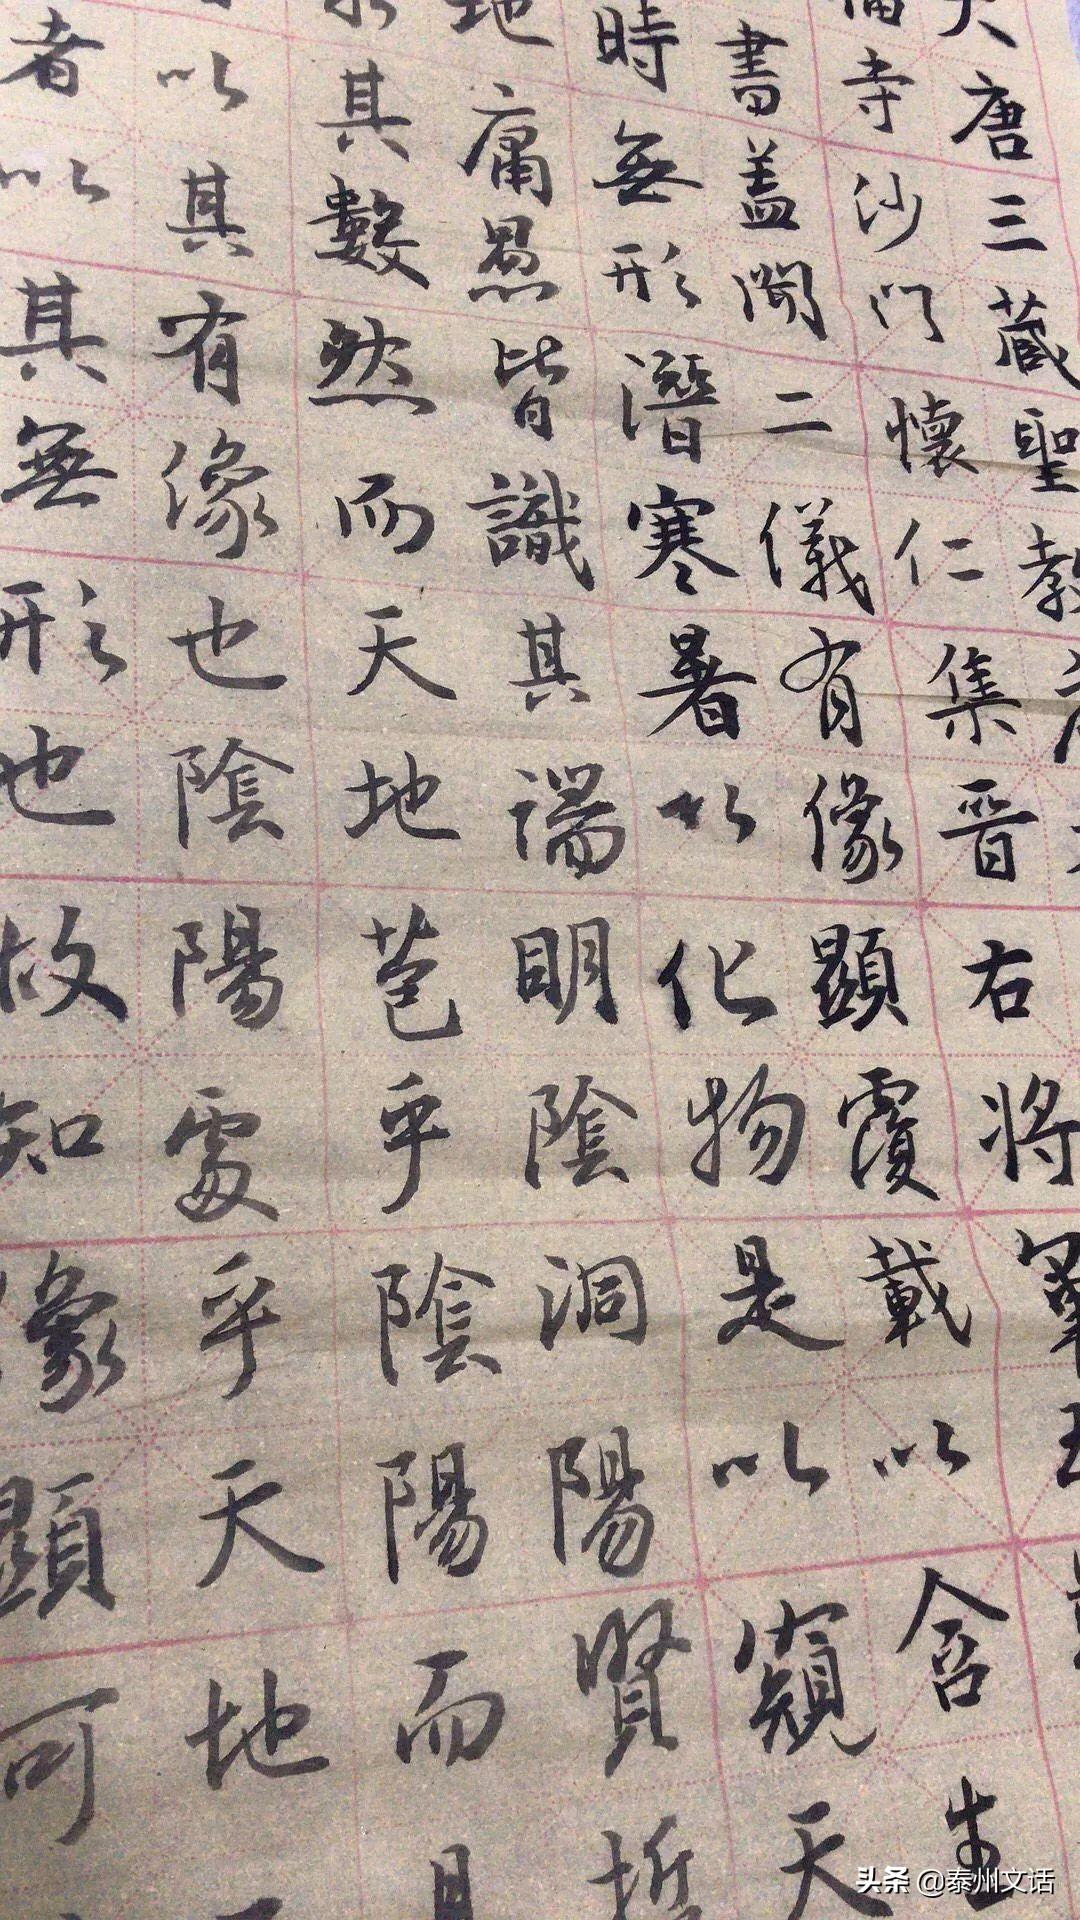 大唐三藏聖教序
福寺沙門懷仁集晉右將軍王
書蓋聞二儀有像顯覆載以含生
時無形潛寒暑以化物是以窺天
地庸愚皆識其端明陰洞陽賢哲
其數然而天地苞乎陰陽而
以其有像也陰陽處乎天地
者以其無形也故知像顯可
头条 @泰州文话